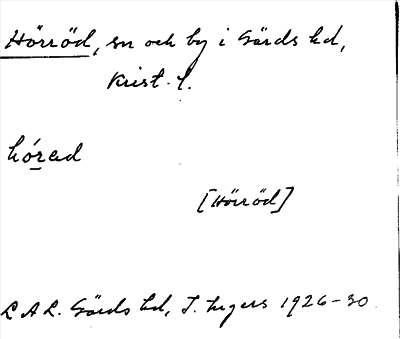 Hörröd, sn och by i Gärds hd,
Krist. l.
hórad
[Hörröd]
L A L. Gärds hd, I. Ingers 1926-30